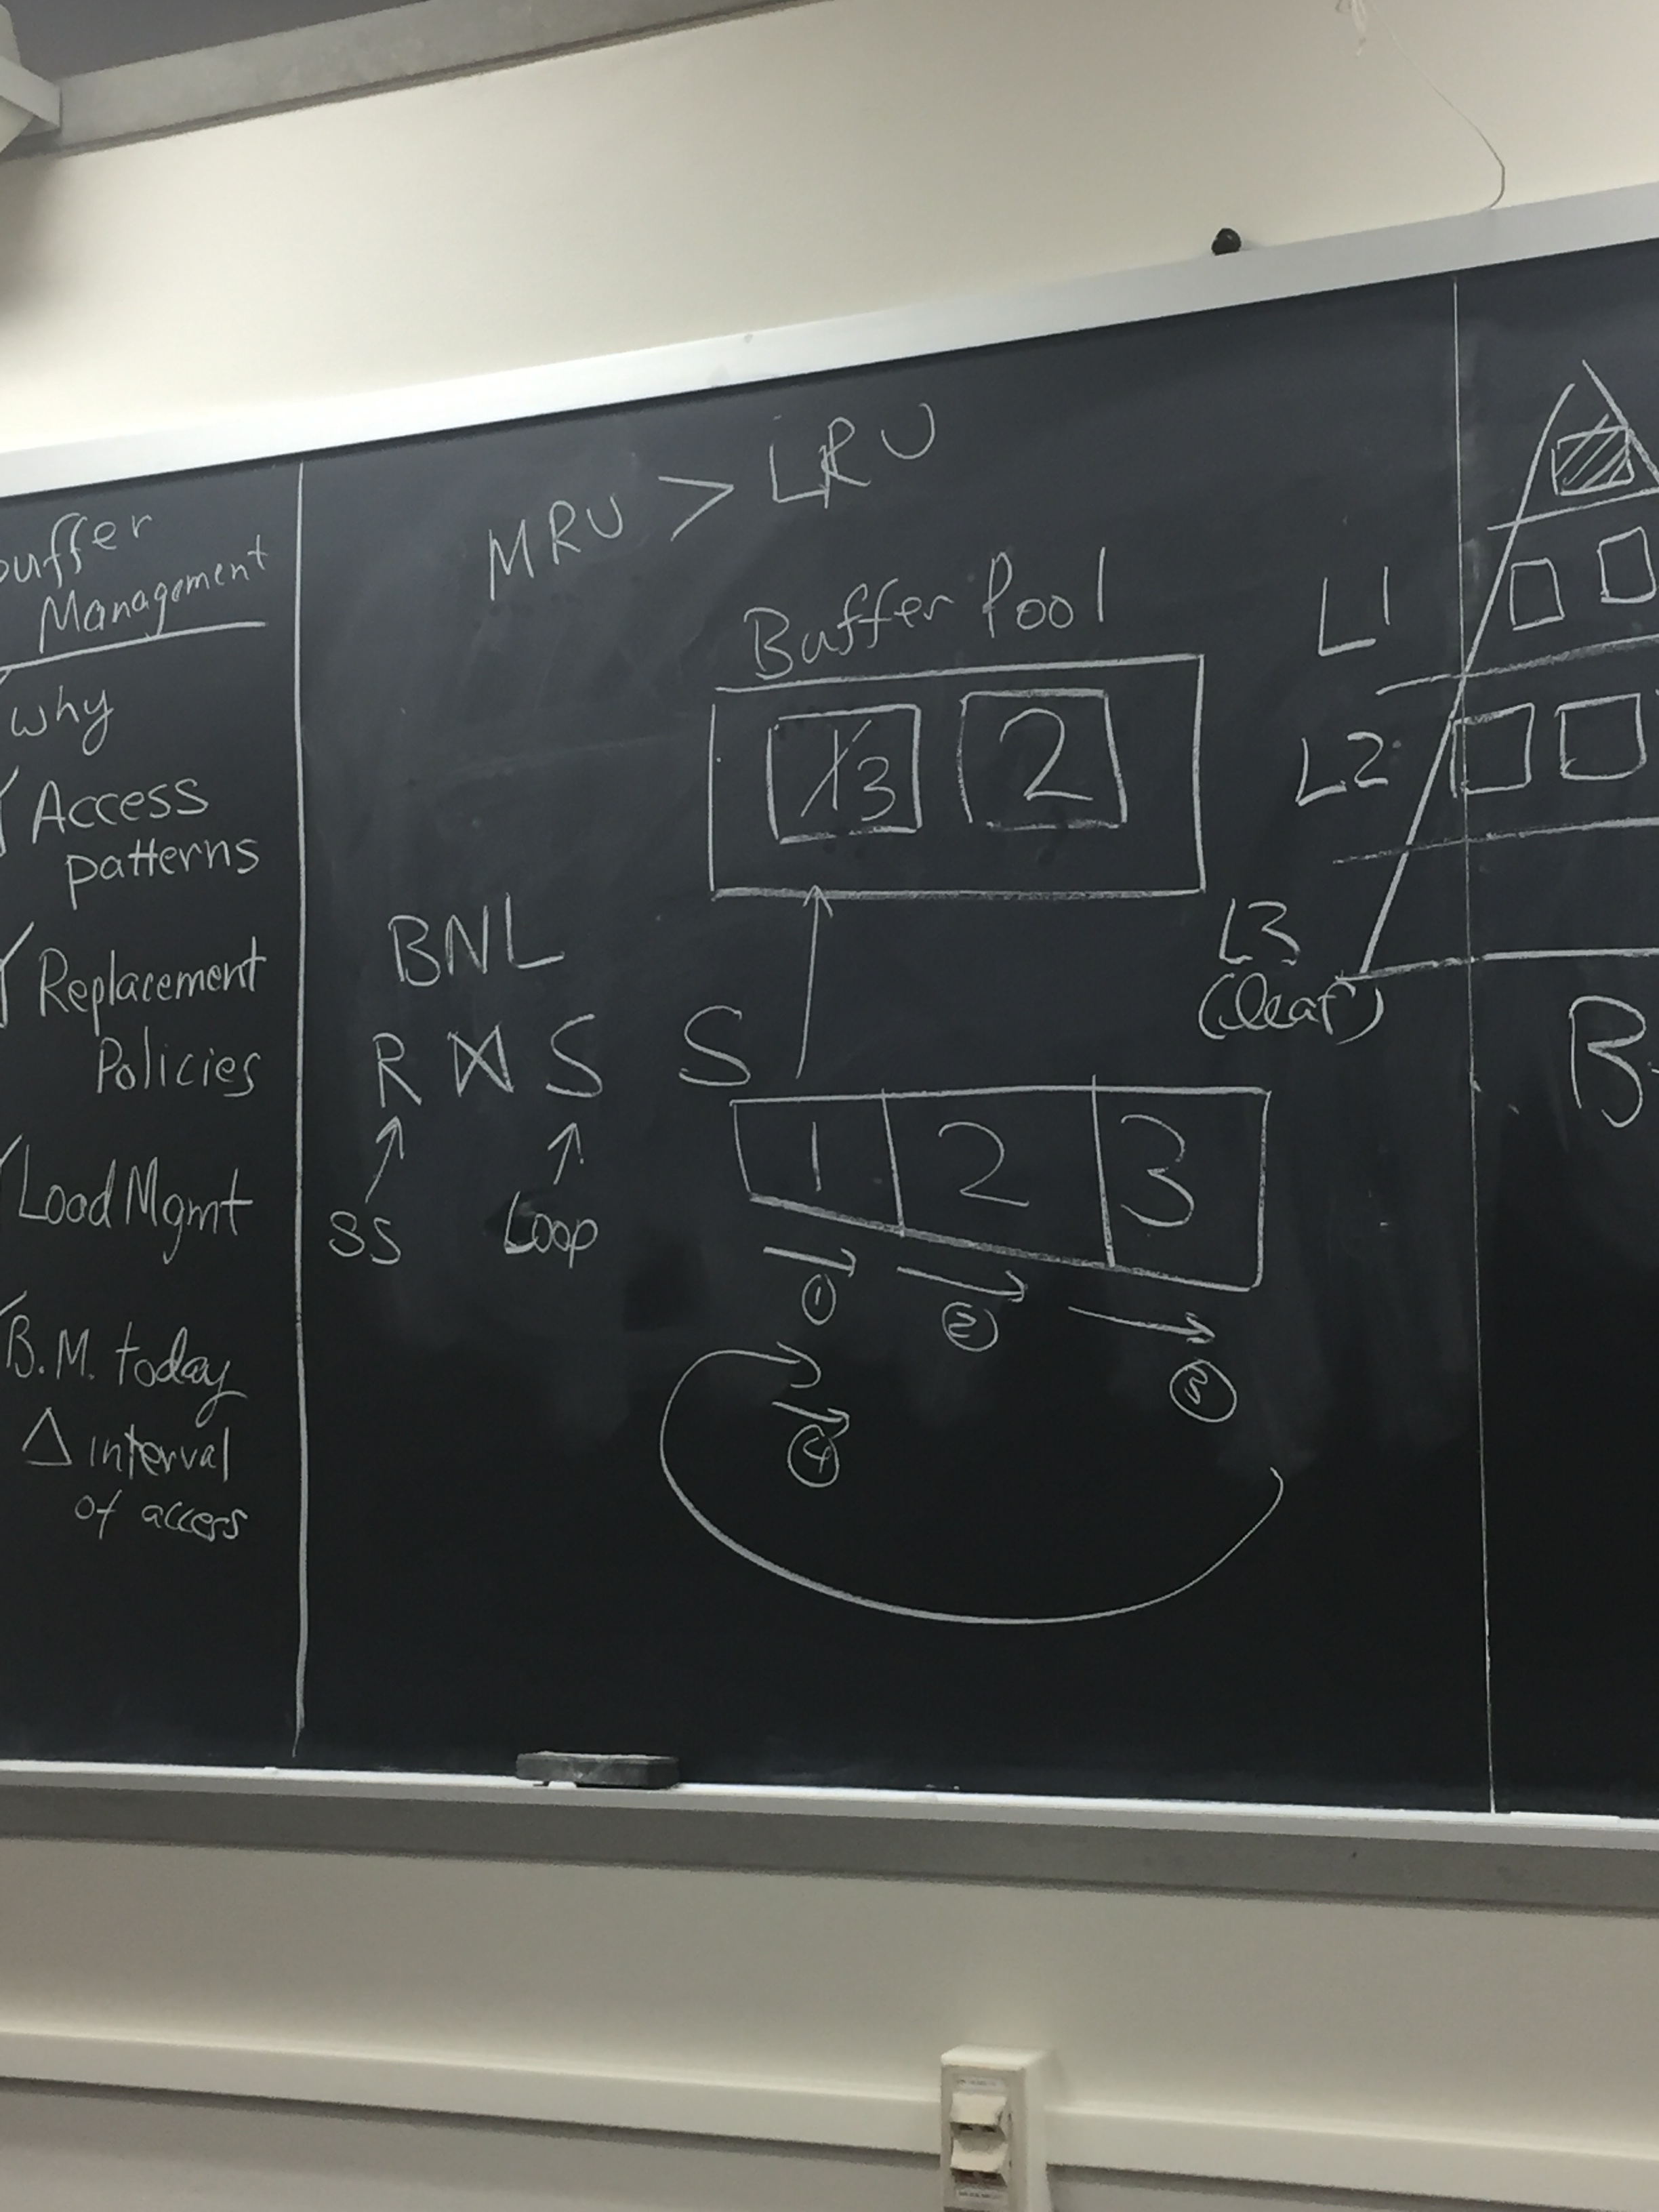 Buffer
Management
why
Access
patterns
Replacement
Policies
Load Mgmt
B.M. today
Δ interval
of access
MRU > LRU
Buffer Pool
1 3 2
BNL
R ⋈ S
SS Loop
S
1 2 3
① ② ③
④
L1
L2
L3
(leaf)
B